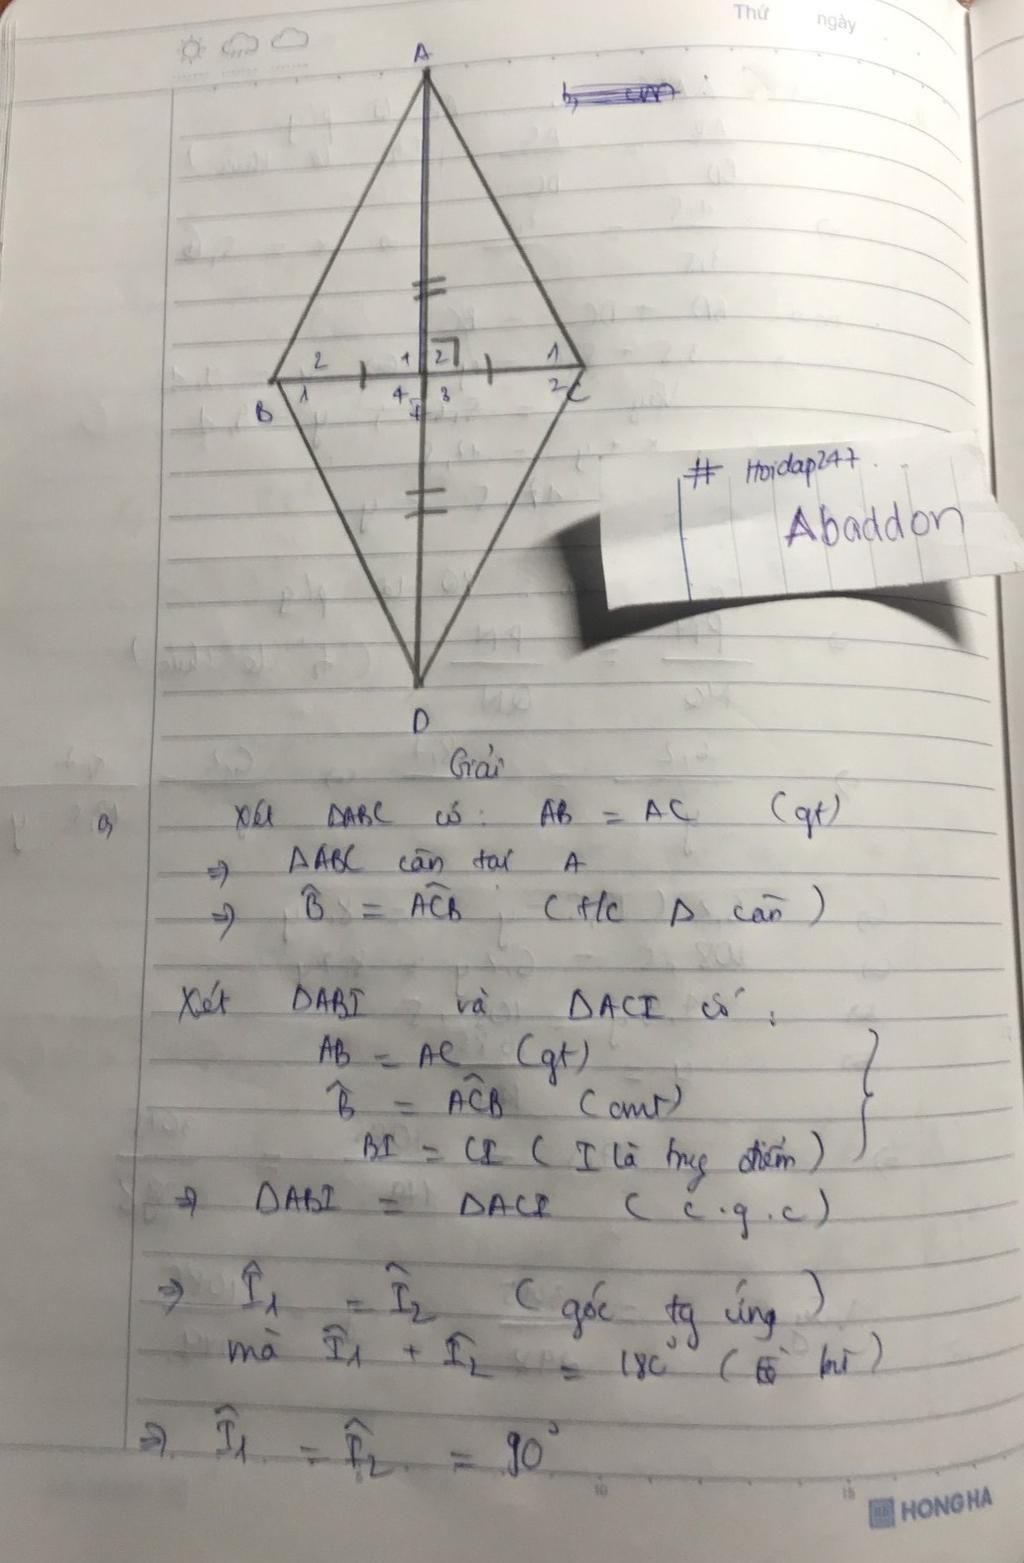 Thứ ngày
A
2 1 2 1
B 1 4 I 3 2 C
# Hoidap247
Abaddon
D
Giải
a, Xét ΔABC có: AB = AC (gt)
⇒ ΔABC cân tại A
⇒ B̂ = AĈB (t/c Δ cân)
Xét ΔABI và ΔACI có:
AB = AC (gt)
B̂ = AĈB (cmt)
BI = CI (I là trung điểm)
⇒ ΔABI = ΔACI (c.g.c)
⇒ Î1 = Î2 (góc tg ứng)
mà Î1 + Î2 = 180° (kề bù)
⇒ Î1 = Î2 = 90°
10 15
HONG HA